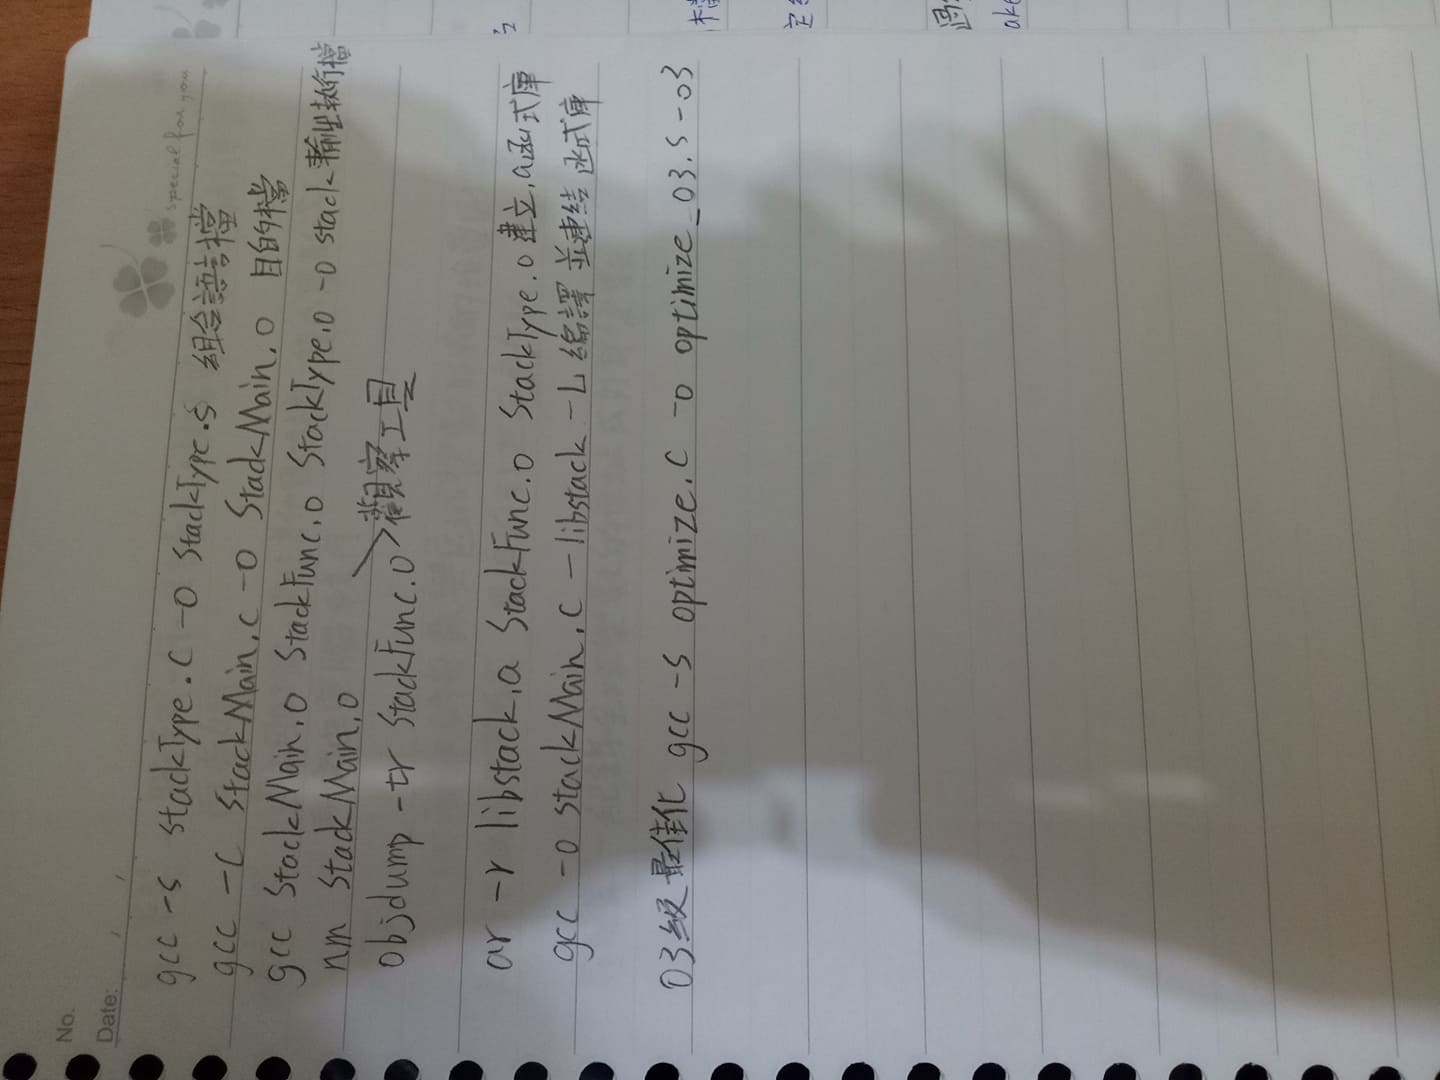 No.
Date: / /
special for you
gcc -s stackType.c -o StackType.s 組合語言檔
gcc -c StackMain.c -o StackMain.o 目的檔
gcc StackMain.o StackFunc.o StackType.o -o stack 輸出執行檔
nm StackMain.o
objdump -tr StackFunc.o > 觀察工具
ar -r libstack.a StackFunc.o StackType.o 建立.a函式庫
gcc -o stackMain.c -libstack -L 編譯並連結函式庫
O3級最佳化 gcc -S optimize.c -o optimize_O3.s -O3
檔
ake